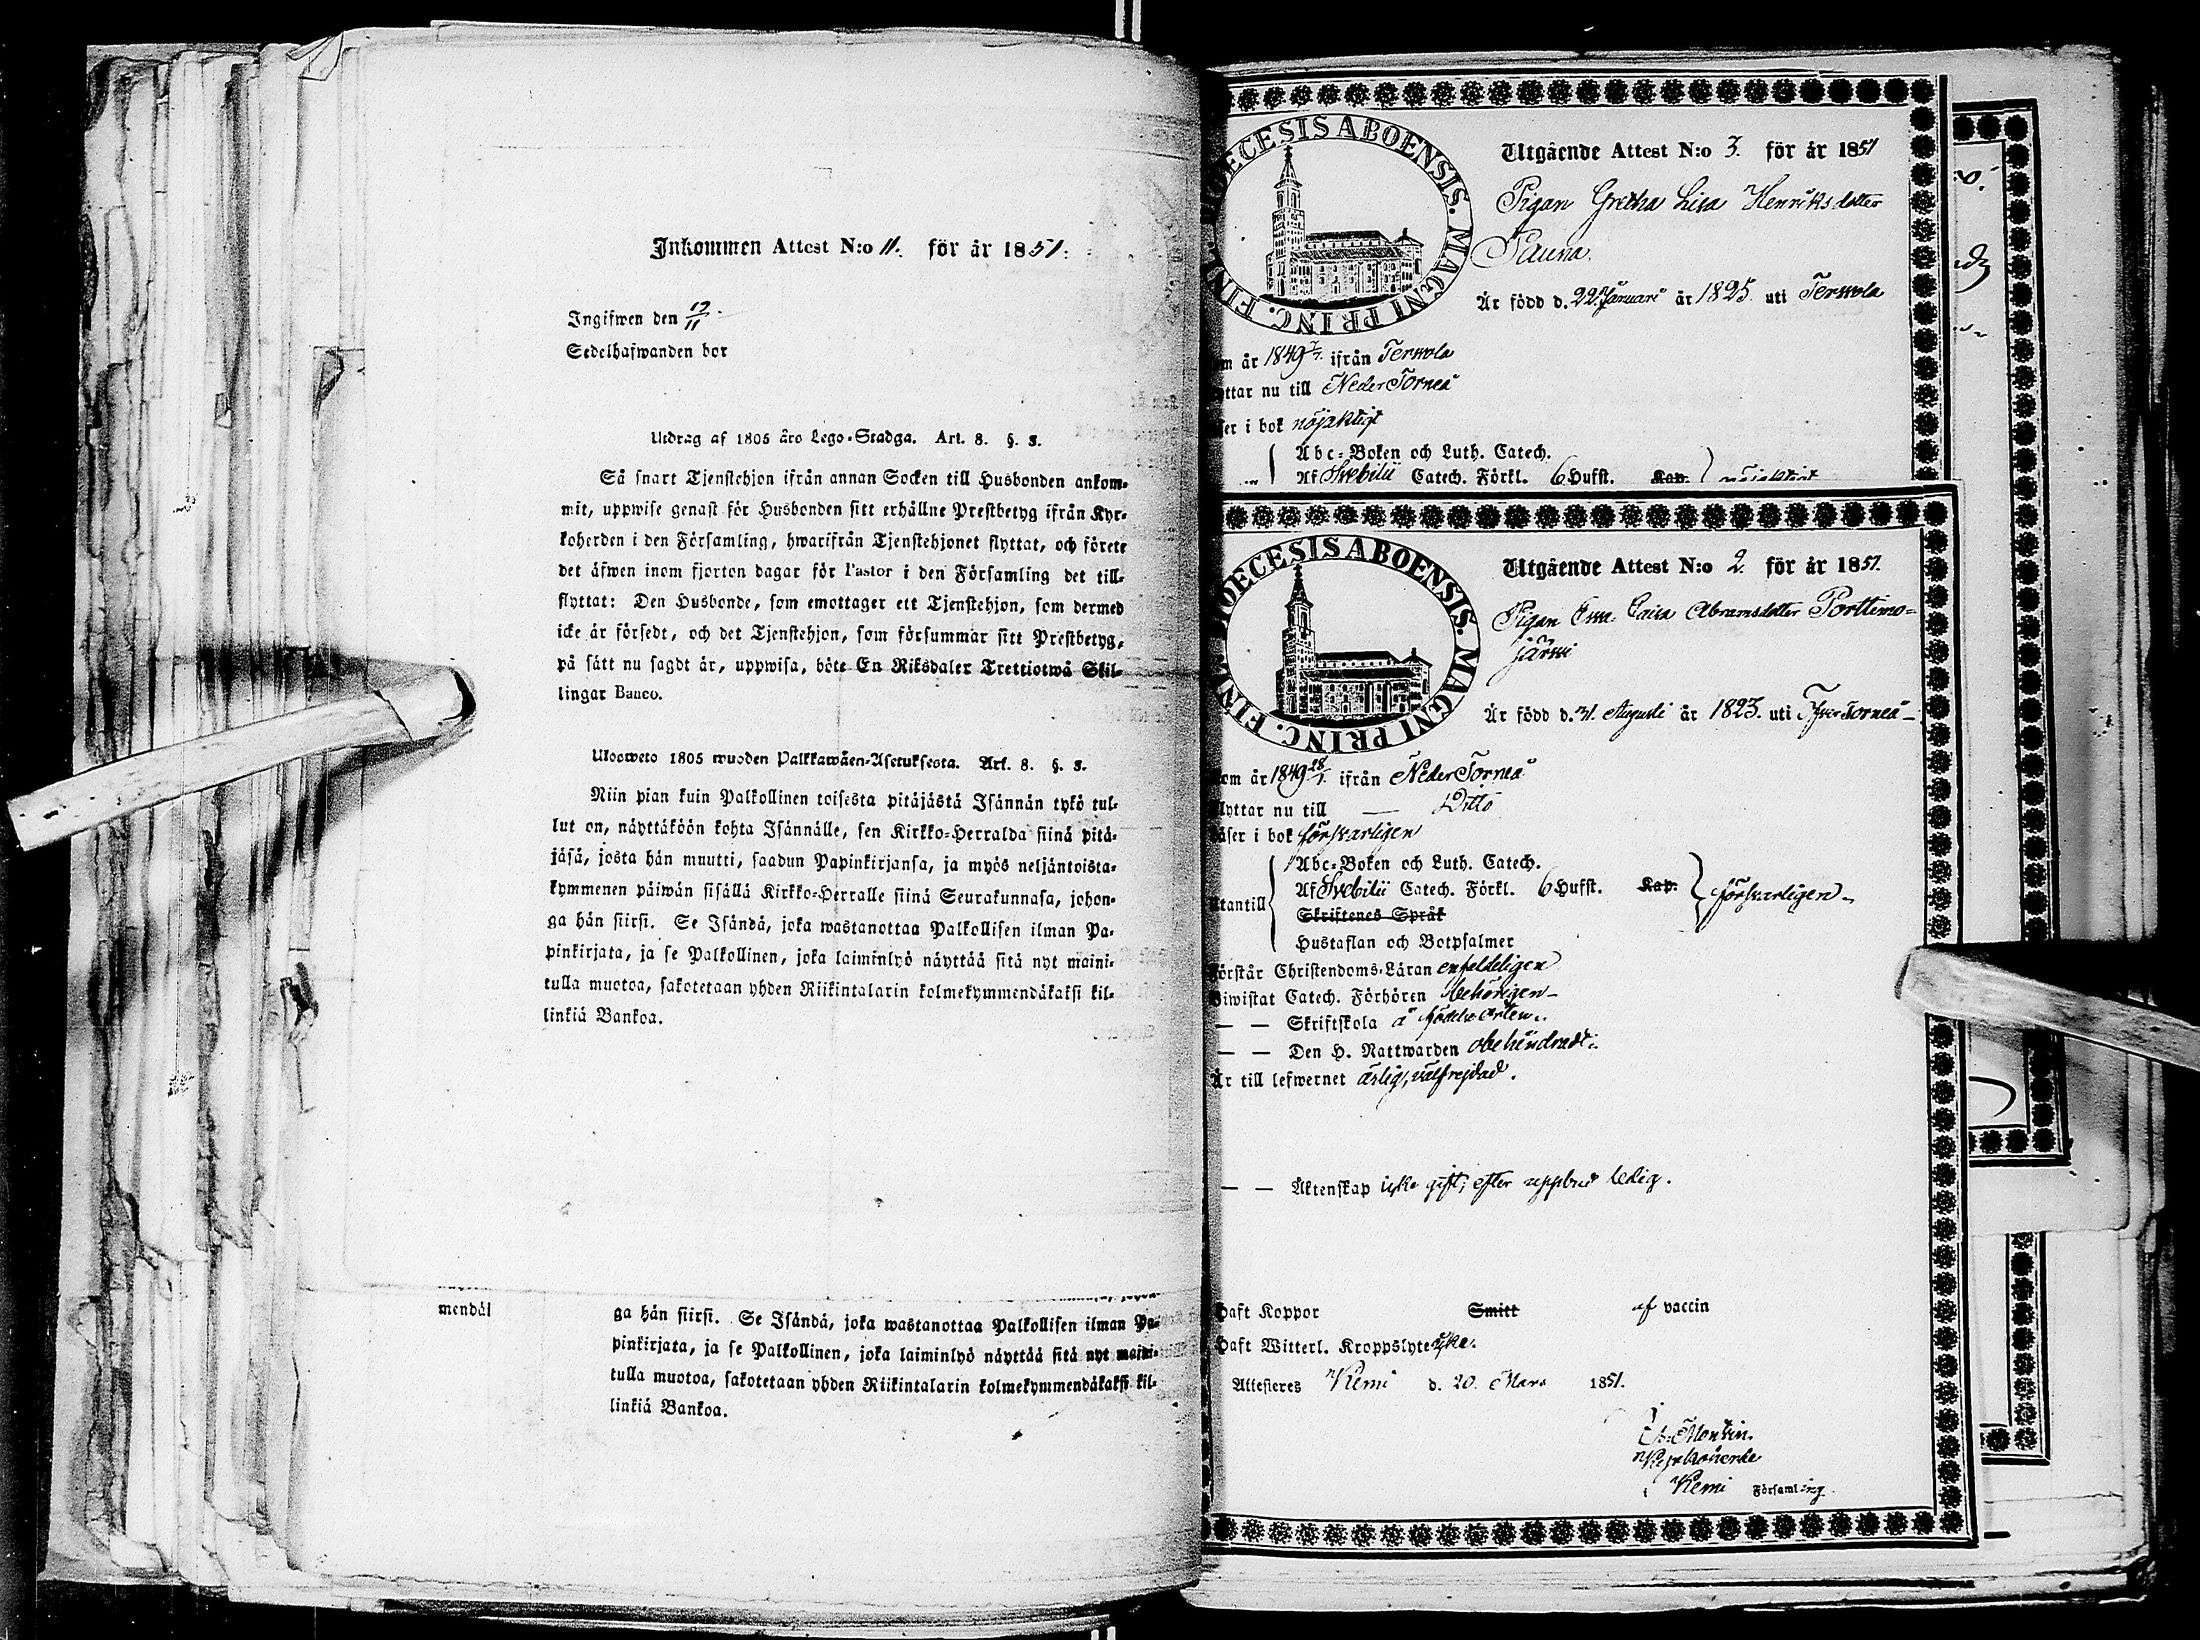 Inkommen Attest N:o 11. för år 1851.
Ingifwen den 17/11.
Sedelhafwanden bor
Utdrag af 1805 års Lego-Stadga. Art. 8. §. 3.
Så snart Tjenstehjon ifrån annan Socken till Husbonden ankom-
mit, uppwise genast för Husbonden sitt erhållne Prestbetyg ifrån Kyr-
koherden i den Församling, hwarifrån Tjenstehjonet flyttat, och förete
det äfwen inom fjorton dagar för Pastor i den Församling det till-
flyttat: Den Husbonde, som emottager ett Tjenstehjon, som dermed
icke är försedt, och det Tjenstehjon, som försummar sitt Prestbetyg,
på sätt nu sagdt är, uppwisa, böte En Riksdaler Trettiotwå Skil-
lingar Banco.
Ulosweto 1805 wuoden Palkkawäen-Asetuksesta. Art. 8. §. 3.
Niin pian kuin Palkollinen toisesta pitäjästä Isännän tykö tul-
lut on, näyttäköön kohta Isännälle, sen Kirkko-Herralda siinä pitä-
jäsä, josta hän muutti, saadun Papinkirjansa, ja myös neljäntoista-
kymmenen päiwän sisällä Kirkko-Herralle siinä Seurakunnasa, johon-
ga hän siirsi. Se Isändä, joka wastanottaa Palkollisen ilman Pa-
pinkirjata, ja se Palkollinen, joka laiminlyö näyttää sitä nyt maini-
tulla muotoa, sakotetaan yhden Riikintalarin kolmekymmendäkaksi kil-
linkiä Bankoa.
mendäl
ga hän siirsi. Se Isändä, joka wastanottaa Palkollisen ilman Pa-
pinkirjata, ja se Palkollinen, joka laiminlyö näyttää sitä nyt maini-
tulla muotoa, sakotetaan yhden Riikintalarin kolmekymmendäkaksi kil-
linkiä Bankoa.
DIOECESIS ABOENSIS. MAGNI PRINC. FINL.
Utgående Attest N:o 3. för år 1851
Pigan Gretha Lisa Henriksdotter
Pauna.
Är född d. 22 Januari år 1825. uti Terwola
om år 1849 ifrån Terwola
yttar nu till Neder Torneå
ser i bok nöjaktigt
Abc-Boken och Luth. Catech.
Af Svebilii Catech. Förkl. 6 Hufst. Kap. nöjaktigt
DIOECESIS ABOENSIS. MAGNI PRINC. FINL.
Utgående Attest N:o 2. för år 1851.
Pigan Ewa Caisa Abramsdotter Porttimo-
järwi
Är född d. 31. Augusti år 1823. uti Öfver Torneå
om år 1849 18/1. ifrån Neder Torneå
flyttar nu till — Ditto
äser i bok försvarligen
Abc-Boken och Luth. Catech.
Af Svebilii Catech. Förkl. 6 Hufst. Kap. försvarligen
Utantill
Skriftenes Språk
Hustaflan och Botpsalmer
Förstår Christendoms-Läran enfaldeligen
Biwistat Catech. Förhören behörigen
— — Skriftskola å födelse orten.
— — Den H. Nattwarden obehindradt.
Är till lefwernet ärlig, välfrejdad.
— — Äktenskap icke gift; efter uppbud ledig.
Haft Koppor Smitt af vaccin
Haft Witterl. Kroppslyte icke.
Attesteres Kemi d. 20. Mars 1851.
Kyrkoherde
Kemi Församling.